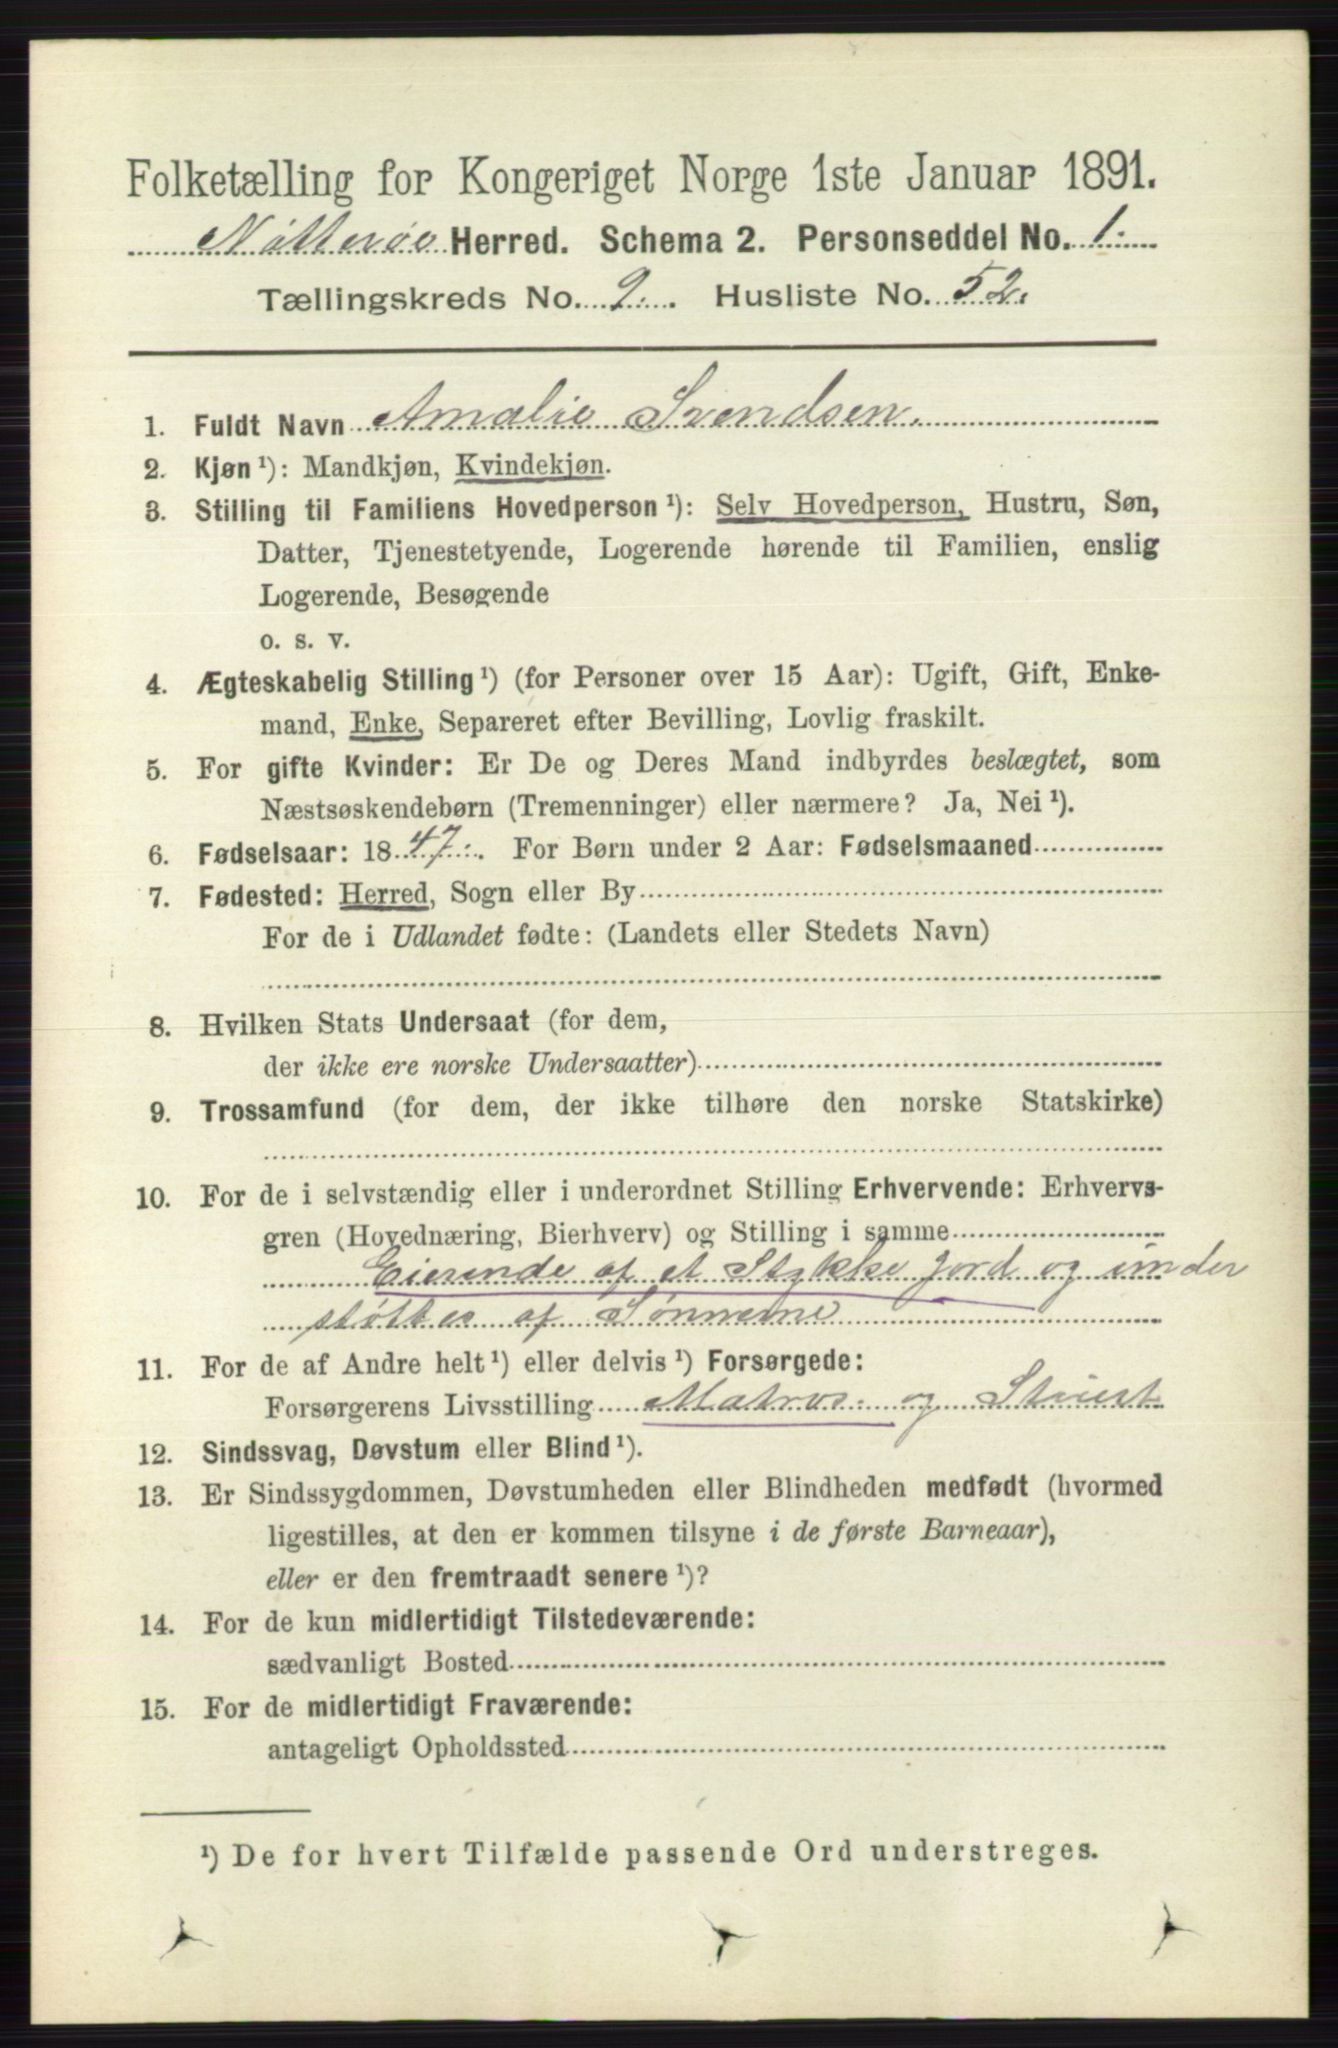 Folketælling for Kongeriget Norge 1ste Januar 1891.
Nötteröe Herred. Schema 2. Personseddel No. 1.
Tællingskreds No. 9. Husliste No. 52.
1. Fuldt Navn Amalie Svendsen.
2. Kjøn ¹): Mandkjøn, Kvindekjøn.
3. Stilling til Familiens Hovedperson ¹): Selv Hovedperson, Hustru, Søn,
Datter, Tjenestetyende, Logerende hørende til Familien, enslig
Logerende, Besøgende
o. s. v.
4. Ægteskabelig Stilling ¹) (for Personer over 15 Aar): Ugift, Gift, Enke-
mand, Enke, Separeret efter Bevilling, Lovlig fraskilt.
5. For gifte Kvinder: Er De og Deres Mand indbyrdes beslægtet, som
Næstsøskendebørn (Tremenninger) eller nærmere? Ja, Nei ¹).
6. Fødselsaar: 1847. For Børn under 2 Aar: Fødselsmaaned
7. Fødested: Herred, Sogn eller By
For de i Udlandet fødte: (Landets eller Stedets Navn)
8. Hvilken Stats Undersaat (for dem,
der ikke ere norske Undersaatter)
9. Trossamfund (for dem, der ikke tilhøre den norske Statskirke)
10. For de i selvstændig eller i underordnet Stilling Erhvervende: Erhvervs-
gren (Hovednæring, Bierhverv) og Stilling i samme
Eierinde af et Stykke Jord og under
støttes af Sønnerne
11. For de af Andre helt ¹) eller delvis ¹) Forsørgede:
Forsørgerens Livsstilling Matros og Stuert
12. Sindssvag, Døvstum eller Blind ¹).
13. Er Sindssygdommen, Døvstumheden eller Blindheden medfødt (hvormed
ligestilles, at den er kommen tilsyne i de første Barneaar),
eller er den fremtraadt senere ¹)?
14. For de kun midlertidigt Tilstedeværende:
sædvanligt Bosted
15. For de midlertidigt Fraværende:
antageligt Opholdssted
¹) De for hvert Tilfælde passende Ord understreges.